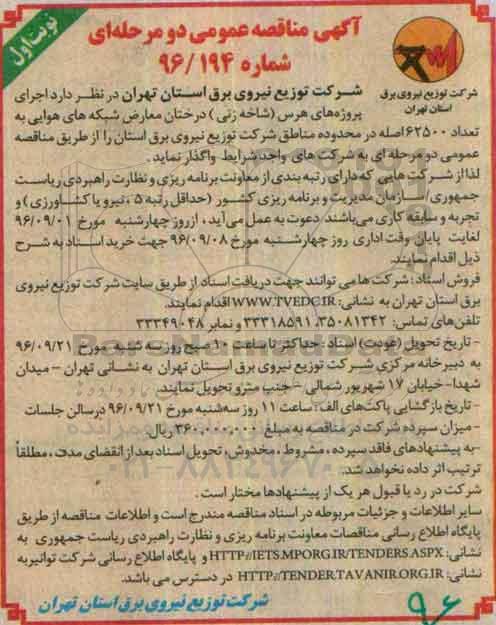 نوبت اول
آگهی مناقصه عمومی دو مرحله‌ای
شماره ۹۶/۱۹۴
شرکت توزیع نیروی برق
استان تهران
شرکت توزیع نیروی برق استان تهران در نظر دارد اجرای
پروژه‌های هرس (شاخه زنی) درختان معارض شبکه های هوایی به
تعداد ۶۲۵۰۰ اصله در محدوده مناطق شرکت توزیع نیروی برق استان را از طریق مناقصه
عمومی دو مرحله ای به شرکت های واجد شرایط واگذار نماید.
لذا از شرکت هایی که دارای رتبه بندی از معاونت برنامه ریزی و نظارت راهبردی ریاست
جمهوری/سازمان مدیریت و برنامه ریزی کشور (حداقل رتبه ۵، نیرو یا کشاورزی) و
تجربه و سابقه کاری می‌باشند دعوت به عمل می‌آید، از روز چهارشنبه مورخ ۹۶/۰۹/۰۱
لغایت پایان وقت اداری روز چهارشنبه مورخ ۹۶/۰۹/۰۸ جهت خرید اسناد به شرح
ذیل اقدام نمایند.
فروش اسناد: شرکت ها می توانند جهت دریافت اسناد از طریق سایت شرکت توزیع نیروی
برق استان تهران به نشانی: WWW.TVEDC.IR اقدام نمایند.
تلفن‌های تماس: ۳۵۰۸۱۳۴۲، ۳۳۳۱۸۵۹۱ و نمابر ۳۳۳۴۹۰۴۸
- تاریخ تحویل (عودت) اسناد: حداکثر تا ساعت ۱۰ صبح روز سه شنبه مورخ ۹۶/۰۹/۲۱
به دبیرخانه مرکزی شرکت توزیع نیروی برق استان تهران به نشانی تهران - میدان
شهدا - خیابان ۱۷ شهریور شمالی - جنب مترو تحویل نمایند.
- تاریخ بازگشایی پاکت‌های الف: ساعت ۱۱ روز سه‌شنبه مورخ ۹۶/۰۹/۲۱ در سالن جلسات
- میزان سپرده شرکت در مناقصه به مبلغ ۳۶۰,۰۰۰,۰۰۰ ریال.
- به پیشنهادهای فاقد سپرده، مشروط، مخدوش، تحویل اسناد بعد از انقضای مدت، مطلقاً
ترتیب اثر داده نخواهد شد.
شرکت در رد یا قبول هر یک از پیشنهادها مختار است.
سایر اطلاعات و جزئیات مربوطه در اسناد مناقصه مندرج است و اطلاعات مناقصه از طریق
پایگاه اطلاع رسانی مناقصات معاونت برنامه ریزی و نظارت راهبردی ریاست جمهوری به
نشانی: HTTP://IETS.MPORG.IR/TENDERS.ASPX و پایگاه اطلاع رسانی شرکت توانیر به
نشانی: HTTP://TENDER.TAVANIR.ORG.IR در دسترس می باشد.
شرکت توزیع نیروی برق استان تهران
۹۶